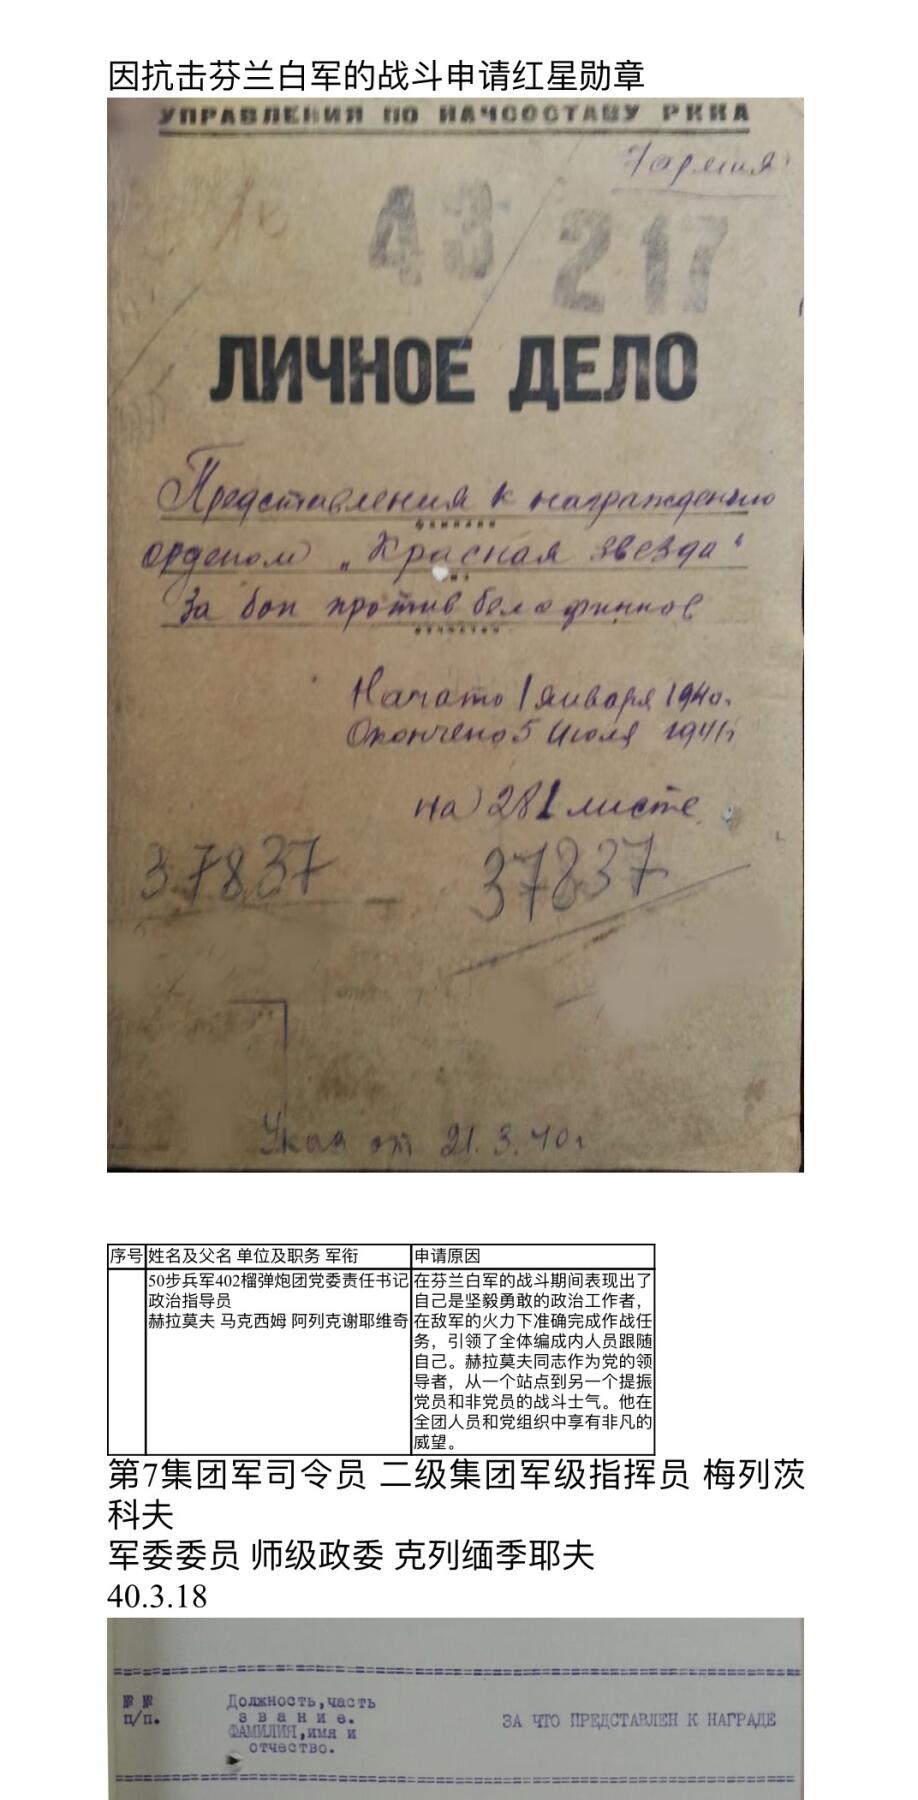 因抗击芬兰白军的战斗申请红星勋章
УПРАВЛЕНИЯ ПО НАЧСОСТАВУ РККА
7 армия
43
217
ЛИЧНОЕ ДЕЛО
Представления к награждению
фамилия
орденом „Красная звезда“
имя
За бои против белофиннов
отчество
Начато 1 января 1940г.
Окончено 5 Июля 1941г
на 281 листе
37837 37837
Указ от 21.3.40г
序号 姓名及父名 单位及职务 军衔 申请原因
50步兵军402榴弹炮团党委责任书记
政治指导员
赫拉莫夫 马克西姆 阿列克谢耶维奇
在芬兰白军的战斗期间表现出了
自己是坚毅勇敢的政治工作者，
在敌军的火力下准确完成作战任
务，引领了全体编成内人员跟随
自己。赫拉莫夫同志作为党的领
导者，从一个站点到另一个提振
党员和非党员的战斗士气。他在
全团人员和党组织中享有非凡的
威望。
第7集团军司令员 二级集团军级指挥员 梅列茨
科夫
军委委员 师级政委 克列缅季耶夫
40.3.18
№ №
п/п.
Должность,часть
звание.
ФАМИЛИЯ,имя и
отчество.
ЗА ЧТО ПРЕДСТАВЛЕН К НАГРАДЕ